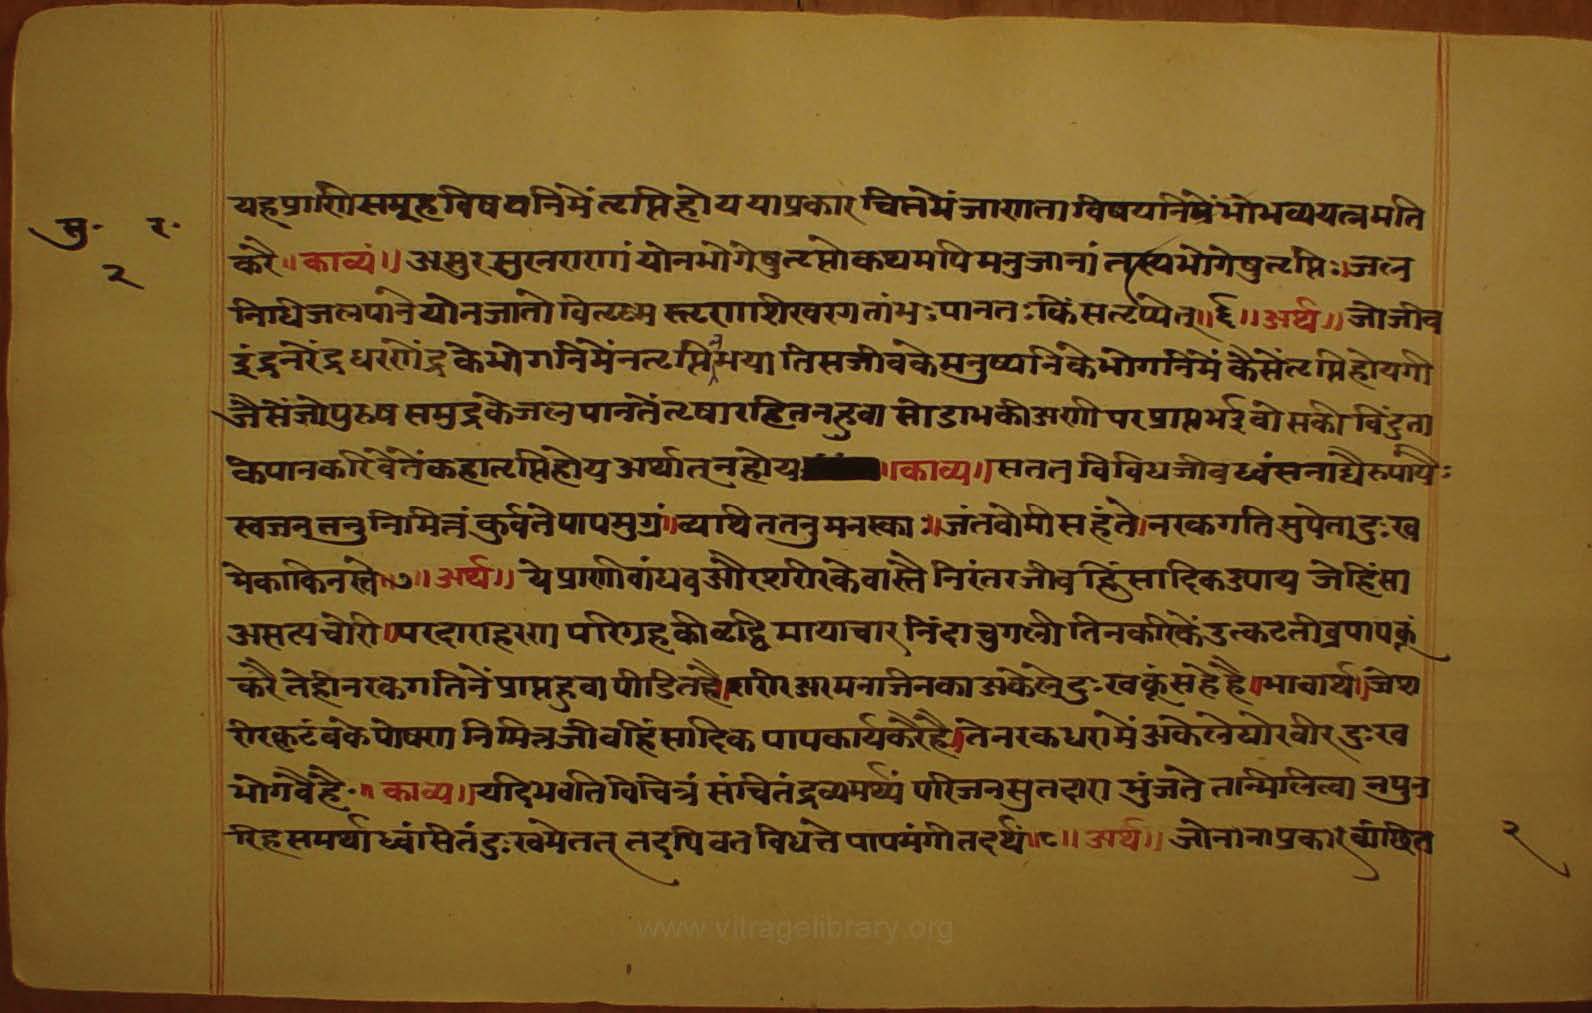 सु. र.
२
यहप्राणीसमूहविषयनिमेंतृप्तिहोय याप्रकार चित्तमेंजाणता विषयनिमेंभोभव्ययत्नमति
करै ॥काव्यं॥ असुरसुरनराणां योनभोगेषुतृप्तोकथमपिमनुजानां तस्यभोगेषुतृप्तिः।जल
निधिजलपाने योनजातो वितृष्ण स्तृणशिखरगतांभःपानतःकिंसतृप्येत्॥६॥अर्थ॥ जोजीव
इंद्रनरेंद्रधरणेंद्रकेभोगनिमेंनतृप्तिभया तिसजीवकेमनुष्यनिकेभोगनिमें कैसेंतृप्तिहोयगी
जैसेंजोपुरुष समुद्रकेजलपानतेंतृषारहितनहुवा सोडाभकीअणी परप्राप्तभईवोसकी विंदुता
केपानकरिवेंतेंकहातृप्तिहोय अर्थात्नहोय ॥काव्य॥ सतत विविधजीवध्वंसनाद्यैरुपायैः
स्वजनतनुनिमित्तं कुर्वतेपापमुग्रं।व्यथिततनुमनस्काः।जंतवोमीसहंते।नरकगतिमुपेतादुःख
मेकाकिनस्ते॥७॥अर्थ॥ ये प्राणीवांधवऔरशरीरकेवास्तै निरंतरजीवहिंसादिकउपाय जेहिंसा
असत्यचोरी।परदाराहरण परिग्रहकीवृद्धि मायाचार निंदाचुगली तिनकरिकें उत्कटतीव्रपापकूं
करै तेहीनरकगतिनें प्राप्तहुवा पीडितहै।शरीरअरमनजिनका अकेलेदुःखकूंसहेहै।भावार्थ।जेश
रीरकुटंबकेपोषण निमित्तजीवहिंसादिक पापकार्यकरैहै।तेनरकधरामें अकेलेघोरवीरदुःख
भोगवैहै॥ काव्य॥यदिभवतिविचित्रं संचितंद्रव्यमर्थ्यं परिजनसुतदारा भुंजते तान्मिलित्वा नपुन
रिहसमर्था ध्वंसितंदुःखमेतत् तदपिवत विधत्ते पापमंगीतदर्थं॥८॥ अर्थ॥ जोनानाप्रकारव्यांछित
२
www.vitragelibrary.org